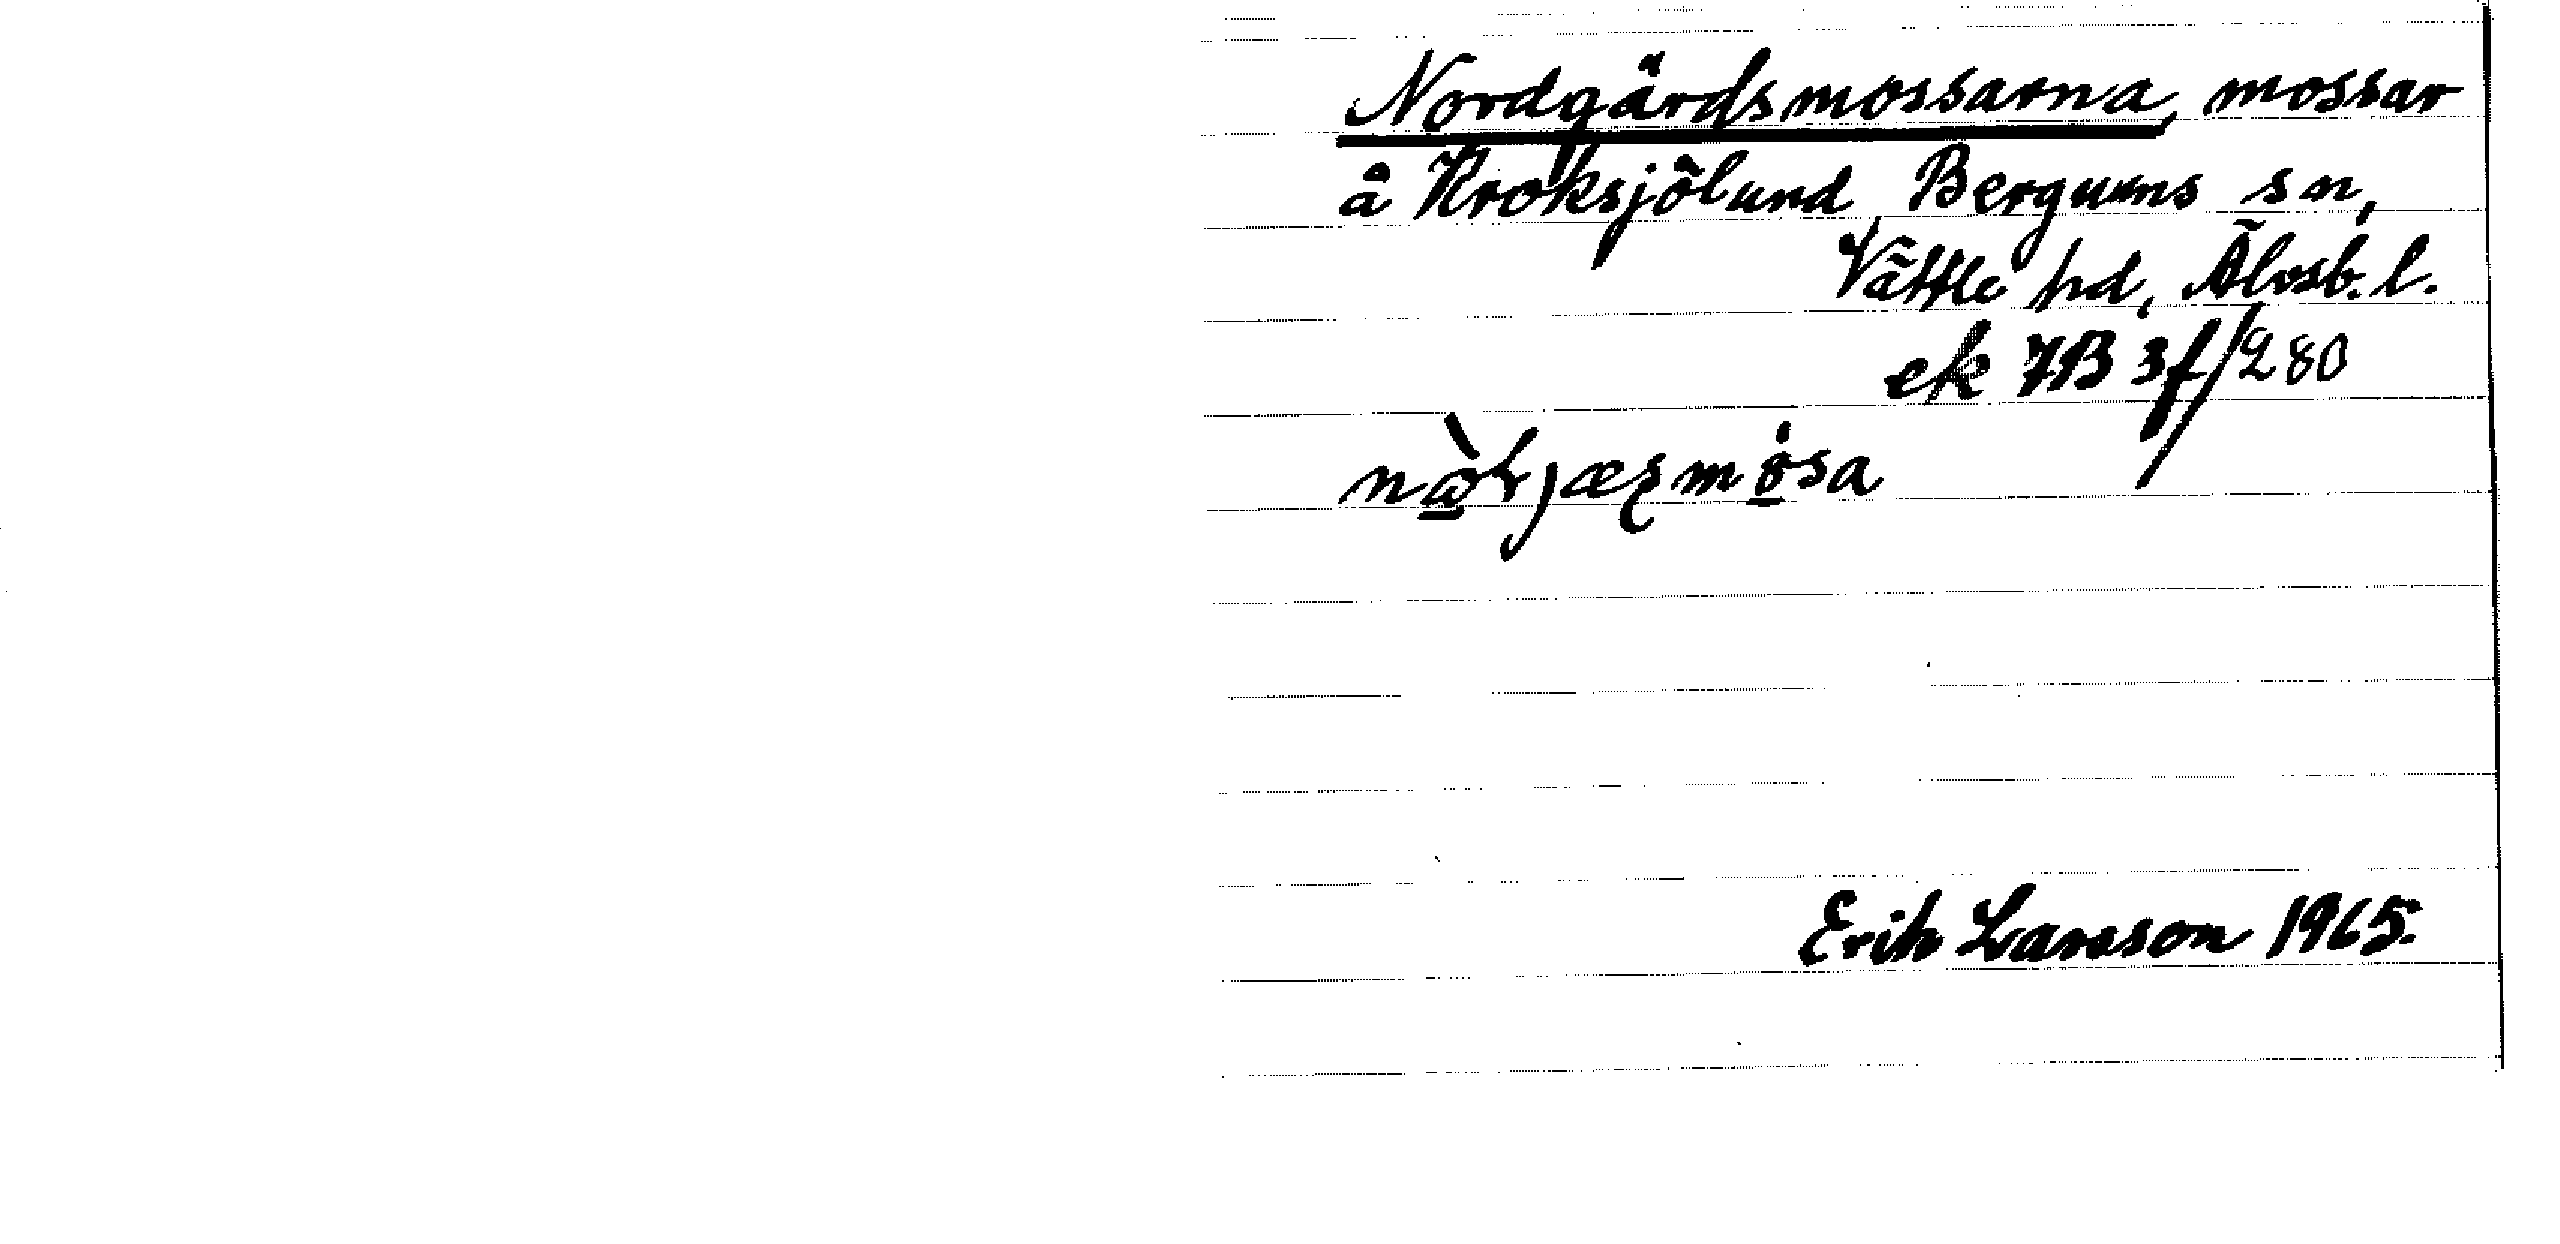 Nordgärdsmossarna, mossar
å Kroksjölund Bergums sn,
Vättle hd, Älvsb. l.
ek 7B 3f/280
Erik Larsson 1965.